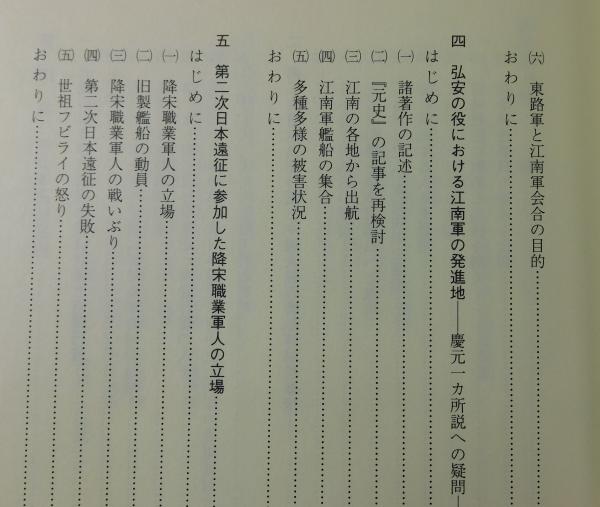 ㈥ 東路軍と江南軍会合の目的……
おわりに……
四 弘安の役における江南軍の発進地――慶元一カ所説への疑問―
はじめに……
㈠ 諸著作の記述……
㈡ 『元史』の記事を再検討……
㈢ 江南の各地から出航……
㈣ 江南軍艦船の集合……
㈤ 多種多様の被害状況……
おわりに……
五 第二次日本遠征に参加した降宋職業軍人の立場……
はじめに……
㈠ 降宋職業軍人の立場……
㈡ 旧製艦船の動員……
㈢ 降宋職業軍人の戦いぶり……
㈣ 第二次日本遠征の失敗……
㈤ 世祖フビライの怒り……
おわりに……